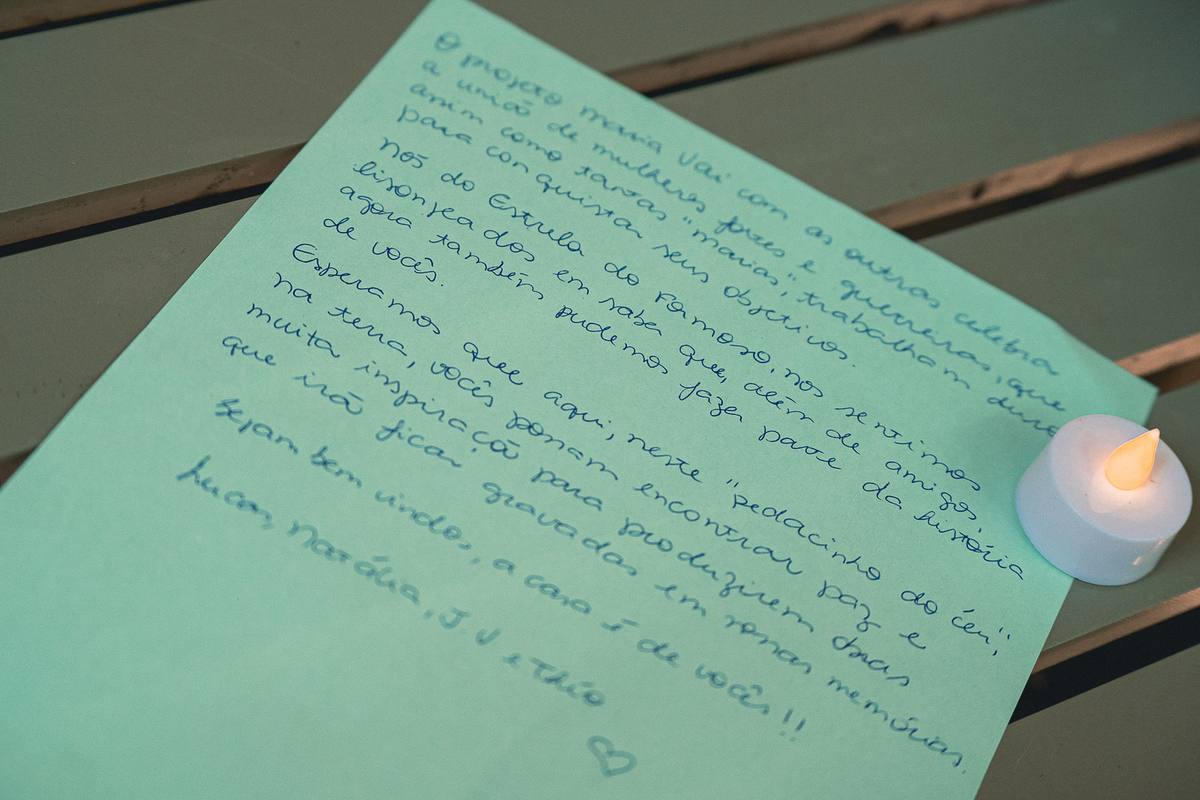 O projeto maria vai com as outras celebra
a união de mulheres fortes e guerreiras, que
assim como tantas "marias", trabalham duro
para conquistar seus objetivos.
nós do Estrela do Formoso, nos sentimos
lisonjeados em saber que, além de amigos,
agora também pudemos fazer parte da história
de vocês.
Esperamos que aqui, neste "pedacinho do céu",
na terra, vocês possam encontrar paz e
muita inspiração para produzirem obras
que irão ficar gravadas em nossas memórias.
Sejam bem vindos, a casa é de vocês!!
Lucas, Natália, J.V e Théo